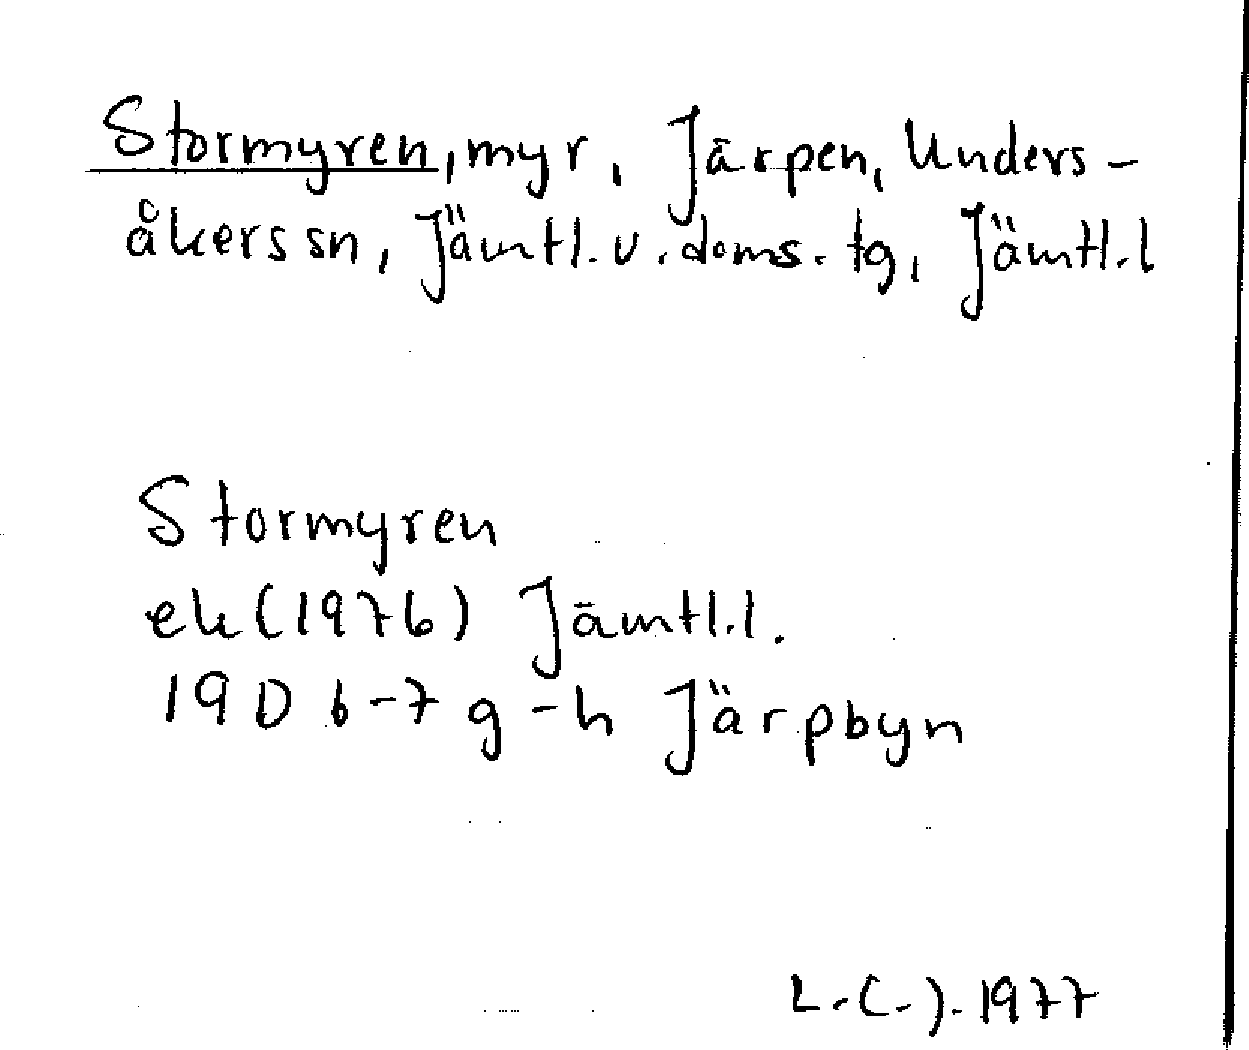 Stormyren, myr, Järpen, Unders-
åkers sn, Jämtl. v. doms. tg, Jämtl. l
Stormyren
ek (1976) Jämtl. l.
19D 6-7 g-h Järpbyn
L.C.J. 1977